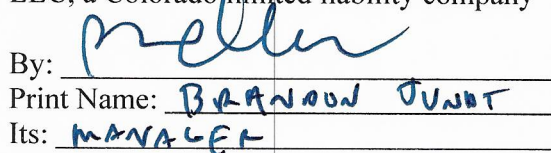 LLC, a Colorado limited liability company
By:
Print Name: BRANDON JUNDT
Its: MANAGER